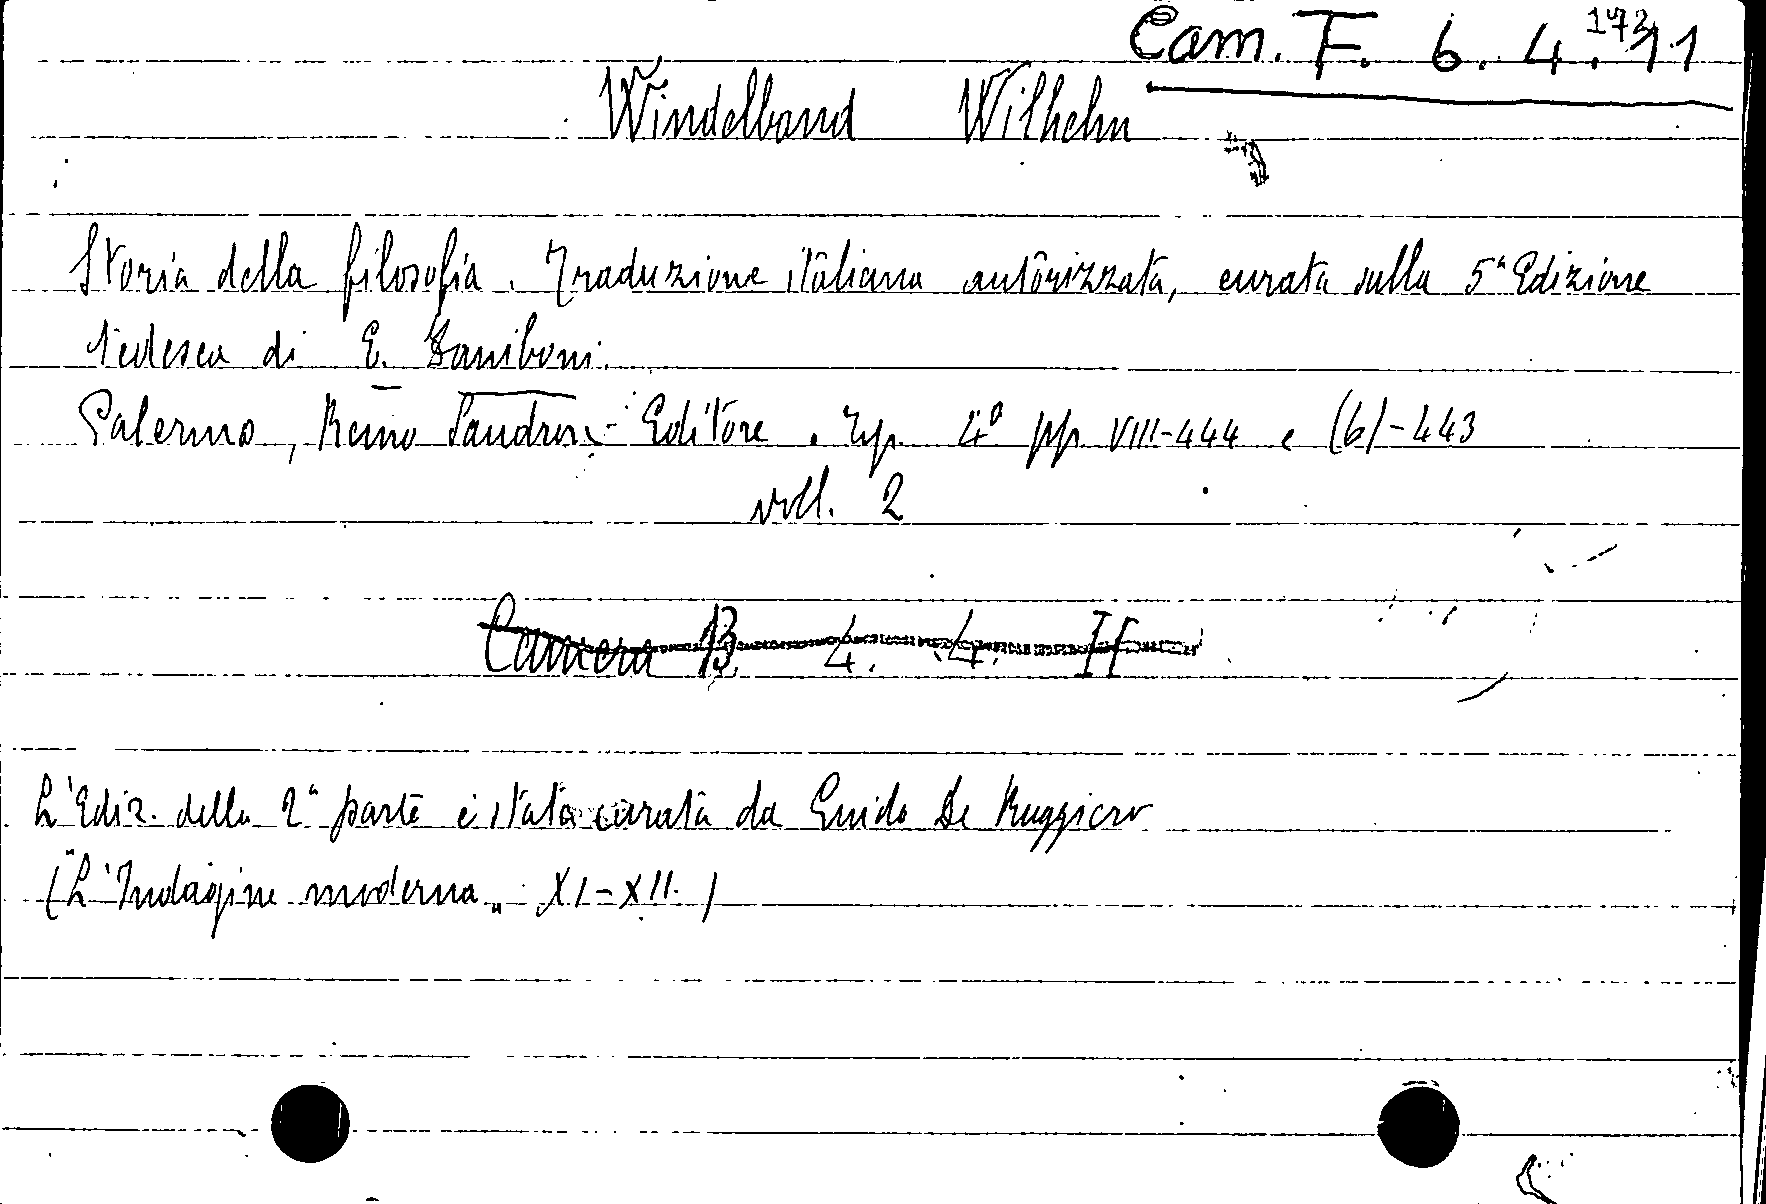 Cam. F. 6. 4. 11
Windelband Wilhelm
Storia della filosofia. Traduzione italiana autorizzata, curata sulla 5ª Edizione
tedesca di E. Zaniboni.
Palermo, Remo Sandron - Editore. Tip. 4º pp. VIII-444 e (6)-443
voll. 2
Camera B. 4. 4. II
L'Ediz. della 2ª parte è stata curata da Guido De Ruggiero
("L'Indagine moderna" XI-XII.)